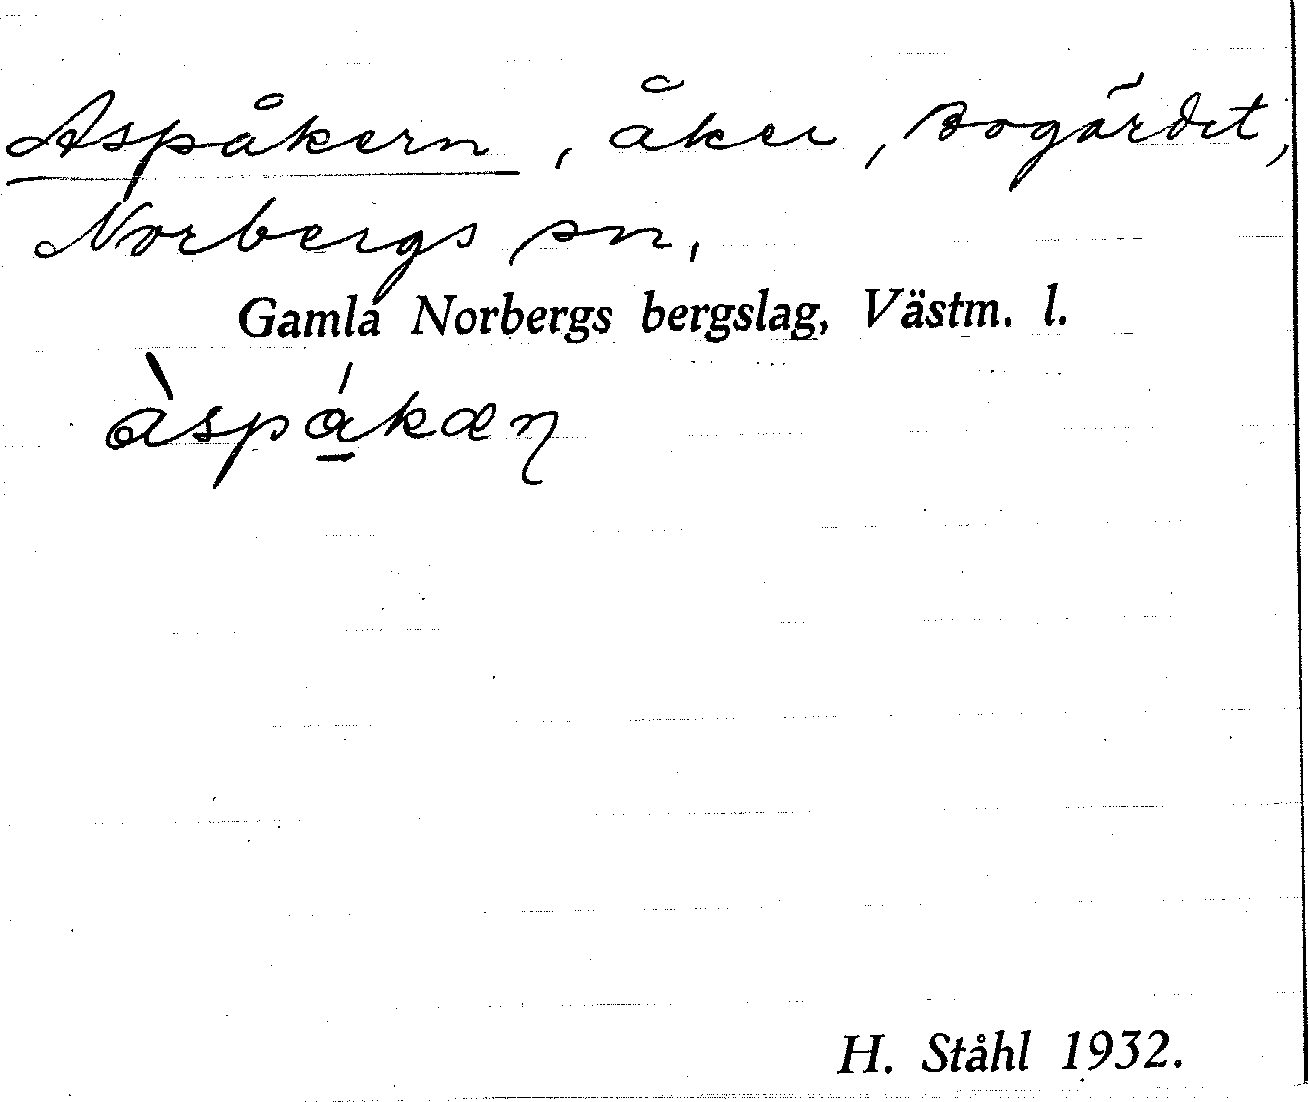 Aspåkern, åker, Bogärdet,
Norbergs sn,
Gamla Norbergs bergslag, Västm. l.
àspákæn
H. Ståhl 1932.